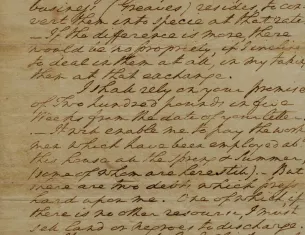 business (Greaves) resides, to con-
vert them into specie at that rate
– If the difference is more, there
would be no propriety, if I incline
to deal in them at all, in my taking
them at that exchange.
I shall rely on your promise
of Two hundred pounds in five
Weeks from the date of your letter.
– It will enable me to pay the work
men which have been employed abt
this house all the Spring & Summer,
(some of whom are here still). – But
there are two debts which press
hard upon me. One of which, if
there is no other resource, I must
sell land or Negroes to discharge